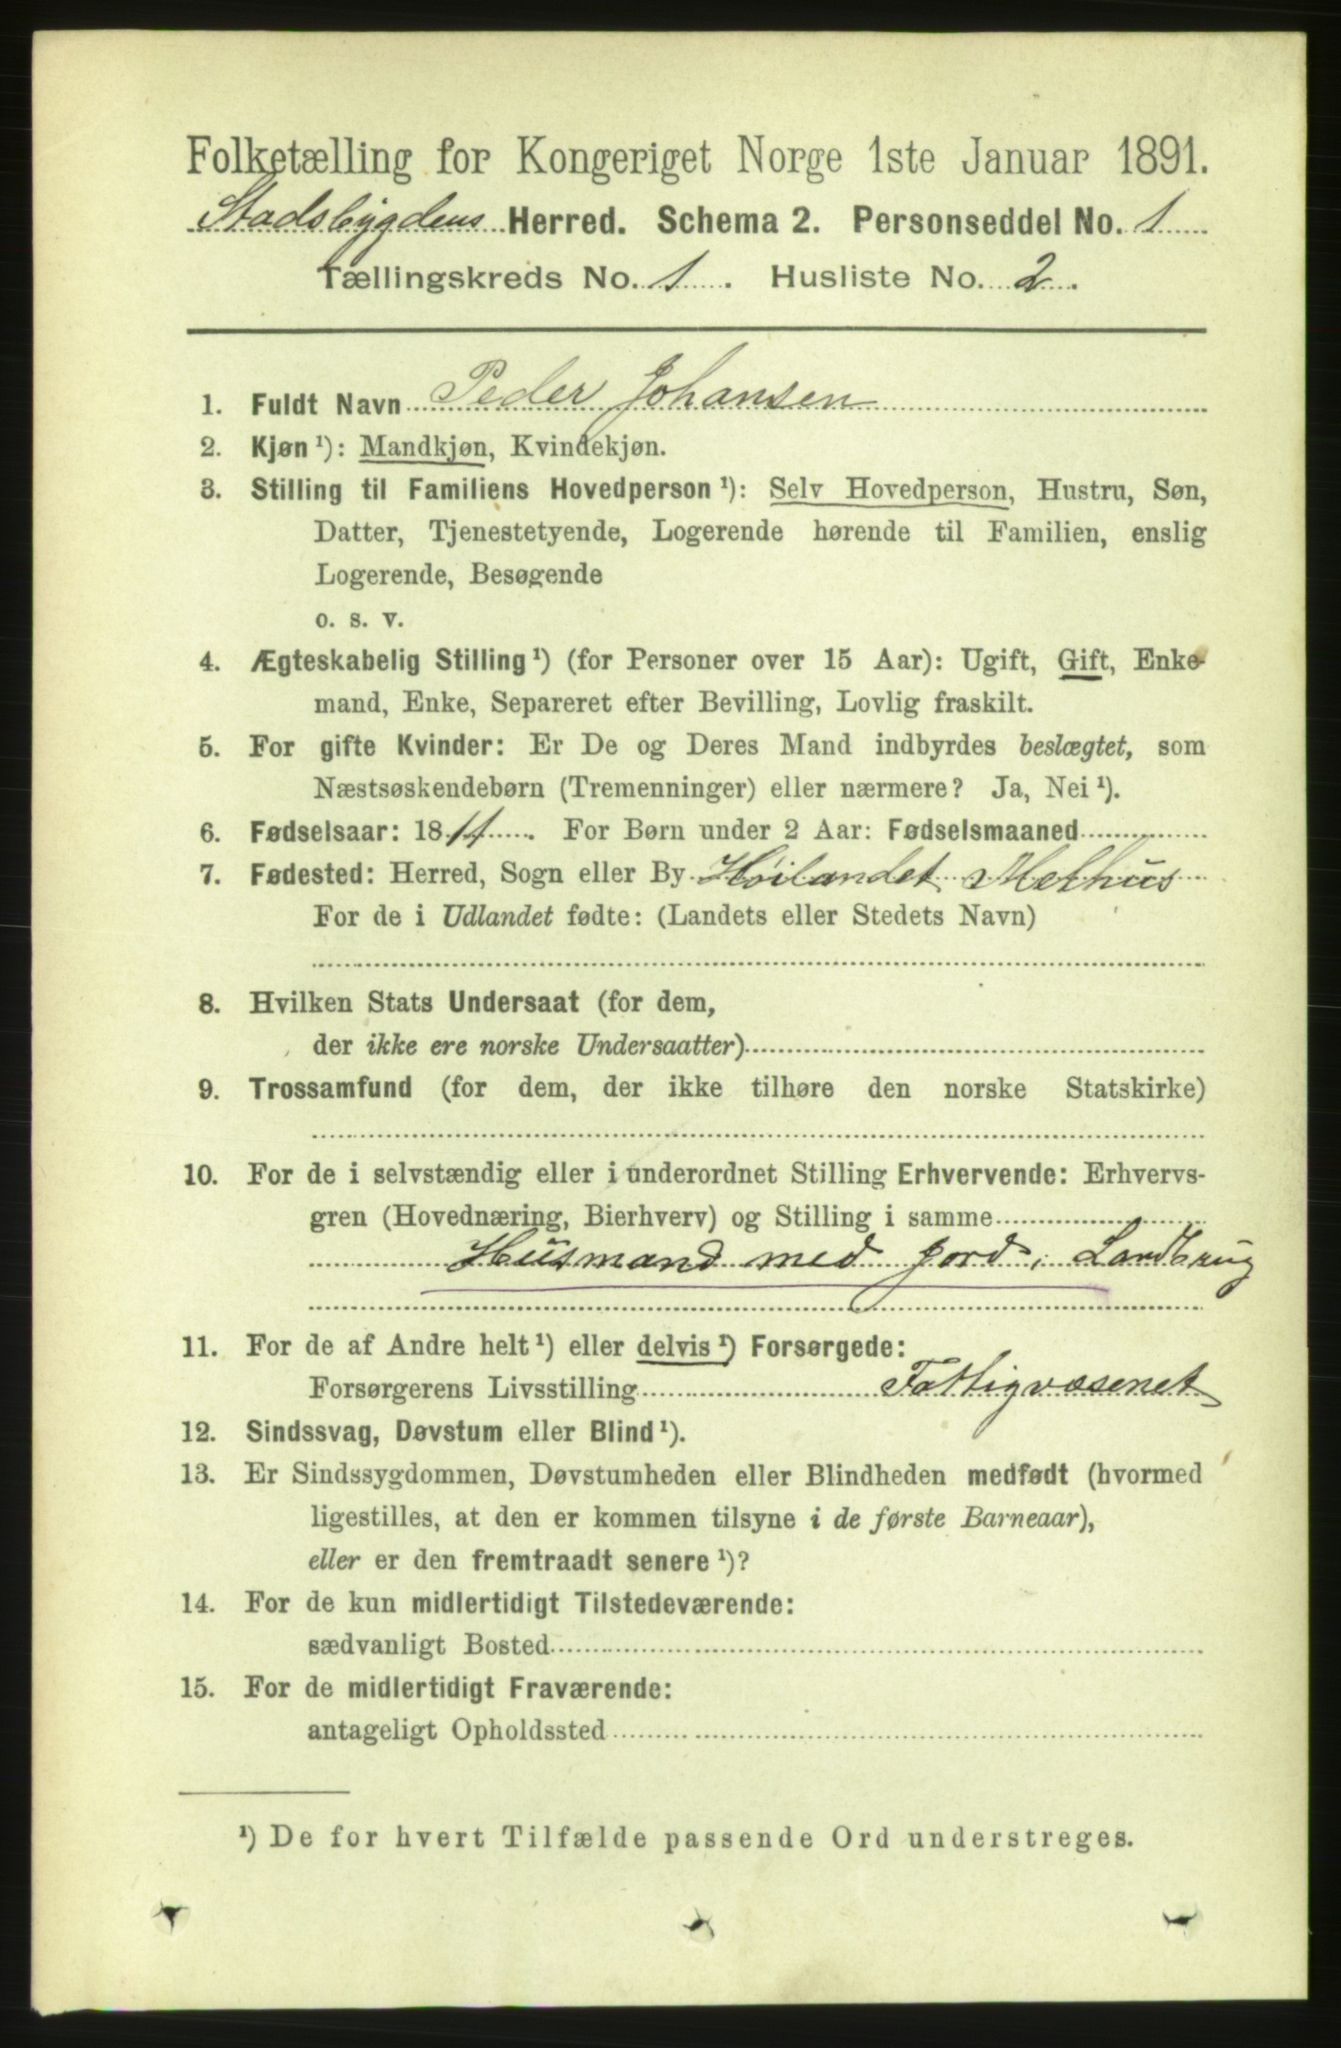 Folketælling for Kongeriget Norge 1ste Januar 1891.
Stadsbygdens Herred. Schema 2. Personseddel No. 1
Tællingskreds No. 1. Husliste No. 2.
1. Fuldt Navn Peder Johansen
2. Kjøn¹): Mandkjøn, Kvindekjøn.
3. Stilling til Familiens Hovedperson¹): Selv Hovedperson, Hustru, Søn,
Datter, Tjenestetyende, Logerende hørende til Familien, enslig
Logerende, Besøgende
o. s. v.
4. Ægteskabelig Stilling¹) (for Personer over 15 Aar): Ugift, Gift, Enke-
mand, Enke, Separeret efter Bevilling, Lovlig fraskilt.
5. For gifte Kvinder: Er De og Deres Mand indbyrdes beslægtet, som
Næstsøskendebørn (Tremenninger) eller nærmere? Ja, Nei¹).
6. Fødselsaar: 1811. For Børn under 2 Aar: Fødselsmaaned
7. Fødested: Herred, Sogn eller By Høilandet Melhus
For de i Udlandet fødte: (Landets eller Stedets Navn)
8. Hvilken Stats Undersaat (for dem,
der ikke ere norske Undersaatter)
9. Trossamfund (for dem, der ikke tilhøre den norske Statskirke)
10. For de i selvstændig eller i underordnet Stilling Erhvervende: Erhvervs-
gren (Hovednæring, Bierhverv) og Stilling i samme
Husmand med Jord, Landbrug
11. For de af Andre helt¹) eller delvis¹) Forsørgede:
Forsørgerens Livsstilling Fattigvæsenet
12. Sindssvag, Døvstum eller Blind¹).
13. Er Sindssygdommen, Døvstumheden eller Blindheden medfødt (hvormed
ligestilles, at den er kommen tilsyne i de første Barneaar),
eller er den fremtraadt senere¹)?
14. For de kun midlertidigt Tilstedeværende:
sædvanligt Bosted
15. For de midlertidigt Fraværende:
antageligt Opholdssted
¹) De for hvert Tilfælde passende Ord understreges.